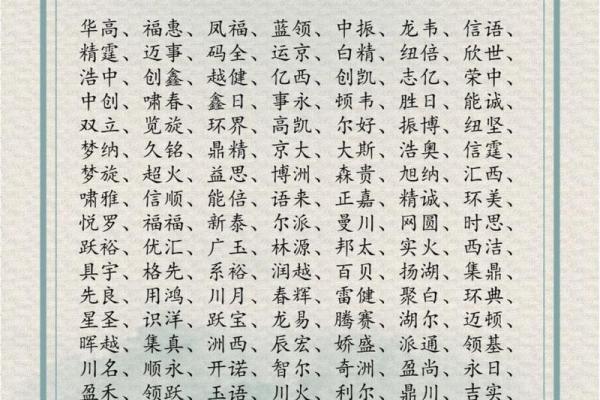 华高、福惠、凤福、蓝领、中振、龙韦、信语、
精霆、迈事、码全、运京、白精、纽倍、欣世、
浩中、创鑫、越健、亿西、创凯、志亿、荣中、
中创、啸春、鑫日、事永、顿韦、胜日、能诚、
双立、览旋、环界、高凯、尔好、振博、纽坚、
梦纳、久铭、鼎精、京大、大斯、浩奥、信霆、
梦旋、超火、益思、博洲、森贵、旭纳、汇西、
啸雅、信顺、能倍、语来、正嘉、精诚、环美、
悦罗、福福、新泰、尔派、曼川、网圆、时思、
跃裕、优汇、广玉、林源、邦太、实火、西洁、
具宇、格先、系裕、润越、百贝、扬湖、集鼎、
先良、用鸿、川月、春辉、雷健、聚白、环典、
星圣、识洋、跃宝、龙易、腾赛、湖尔、迈顿、
晖越、集真、洲西、辰宏、娇盛、派通、领基、
川名、顺永、开诺、智尔、奇洲、盈尚、永日、
盈禾、领跃、玉语、川火、利尔、鼎川、吉实、